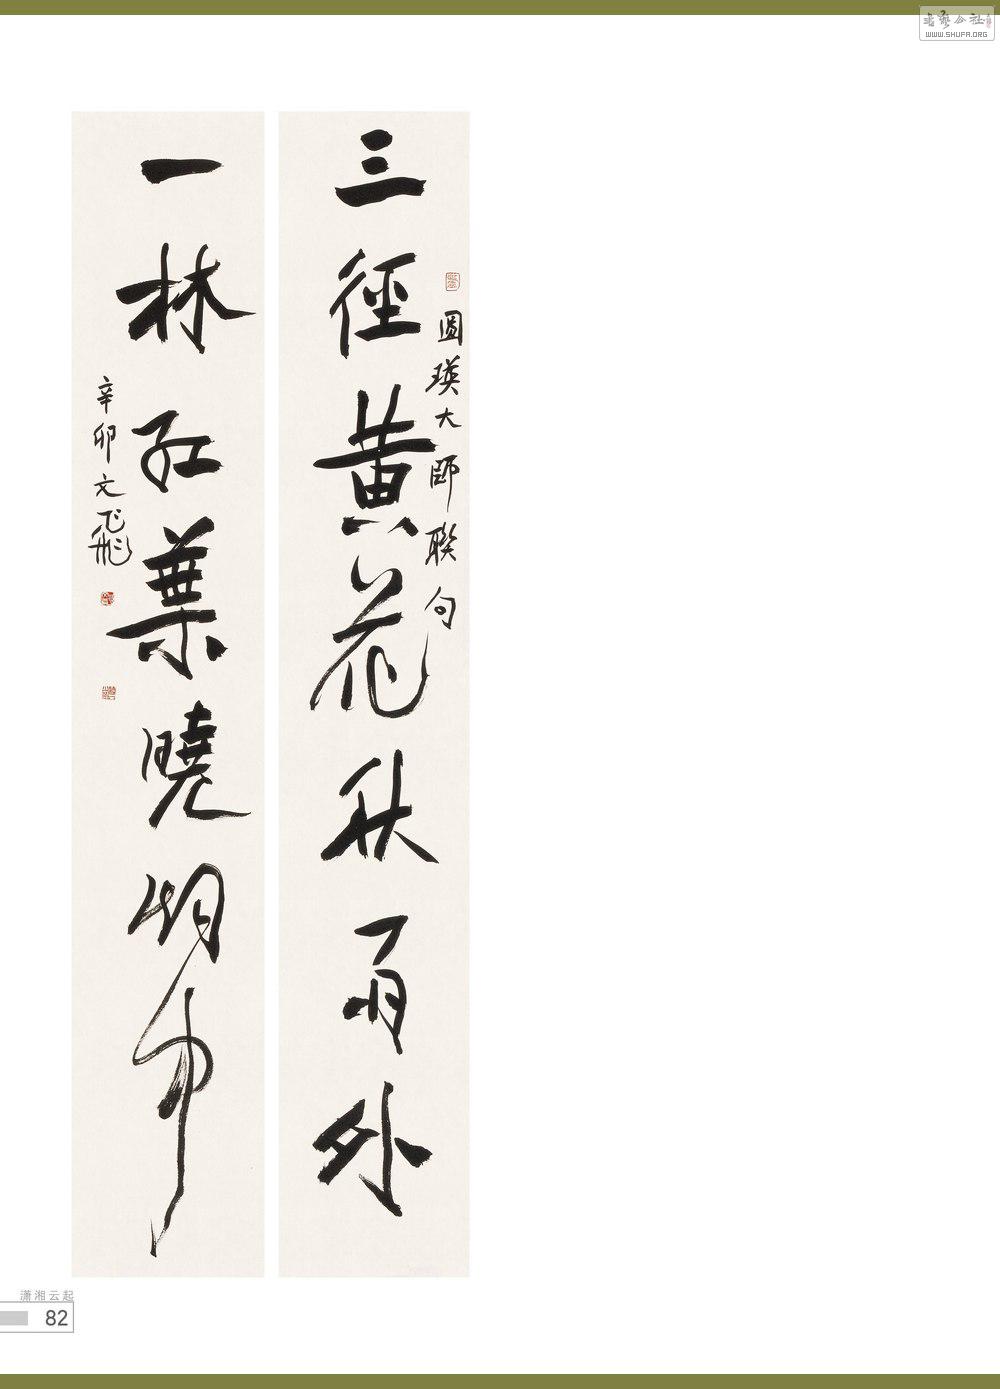 書藝公社
WWW.SHUFA.ORG
三徑黃花秋雨外
圓瑛大師聯句
一林紅葉曉明中
辛卯文飛
潇湘云起
82